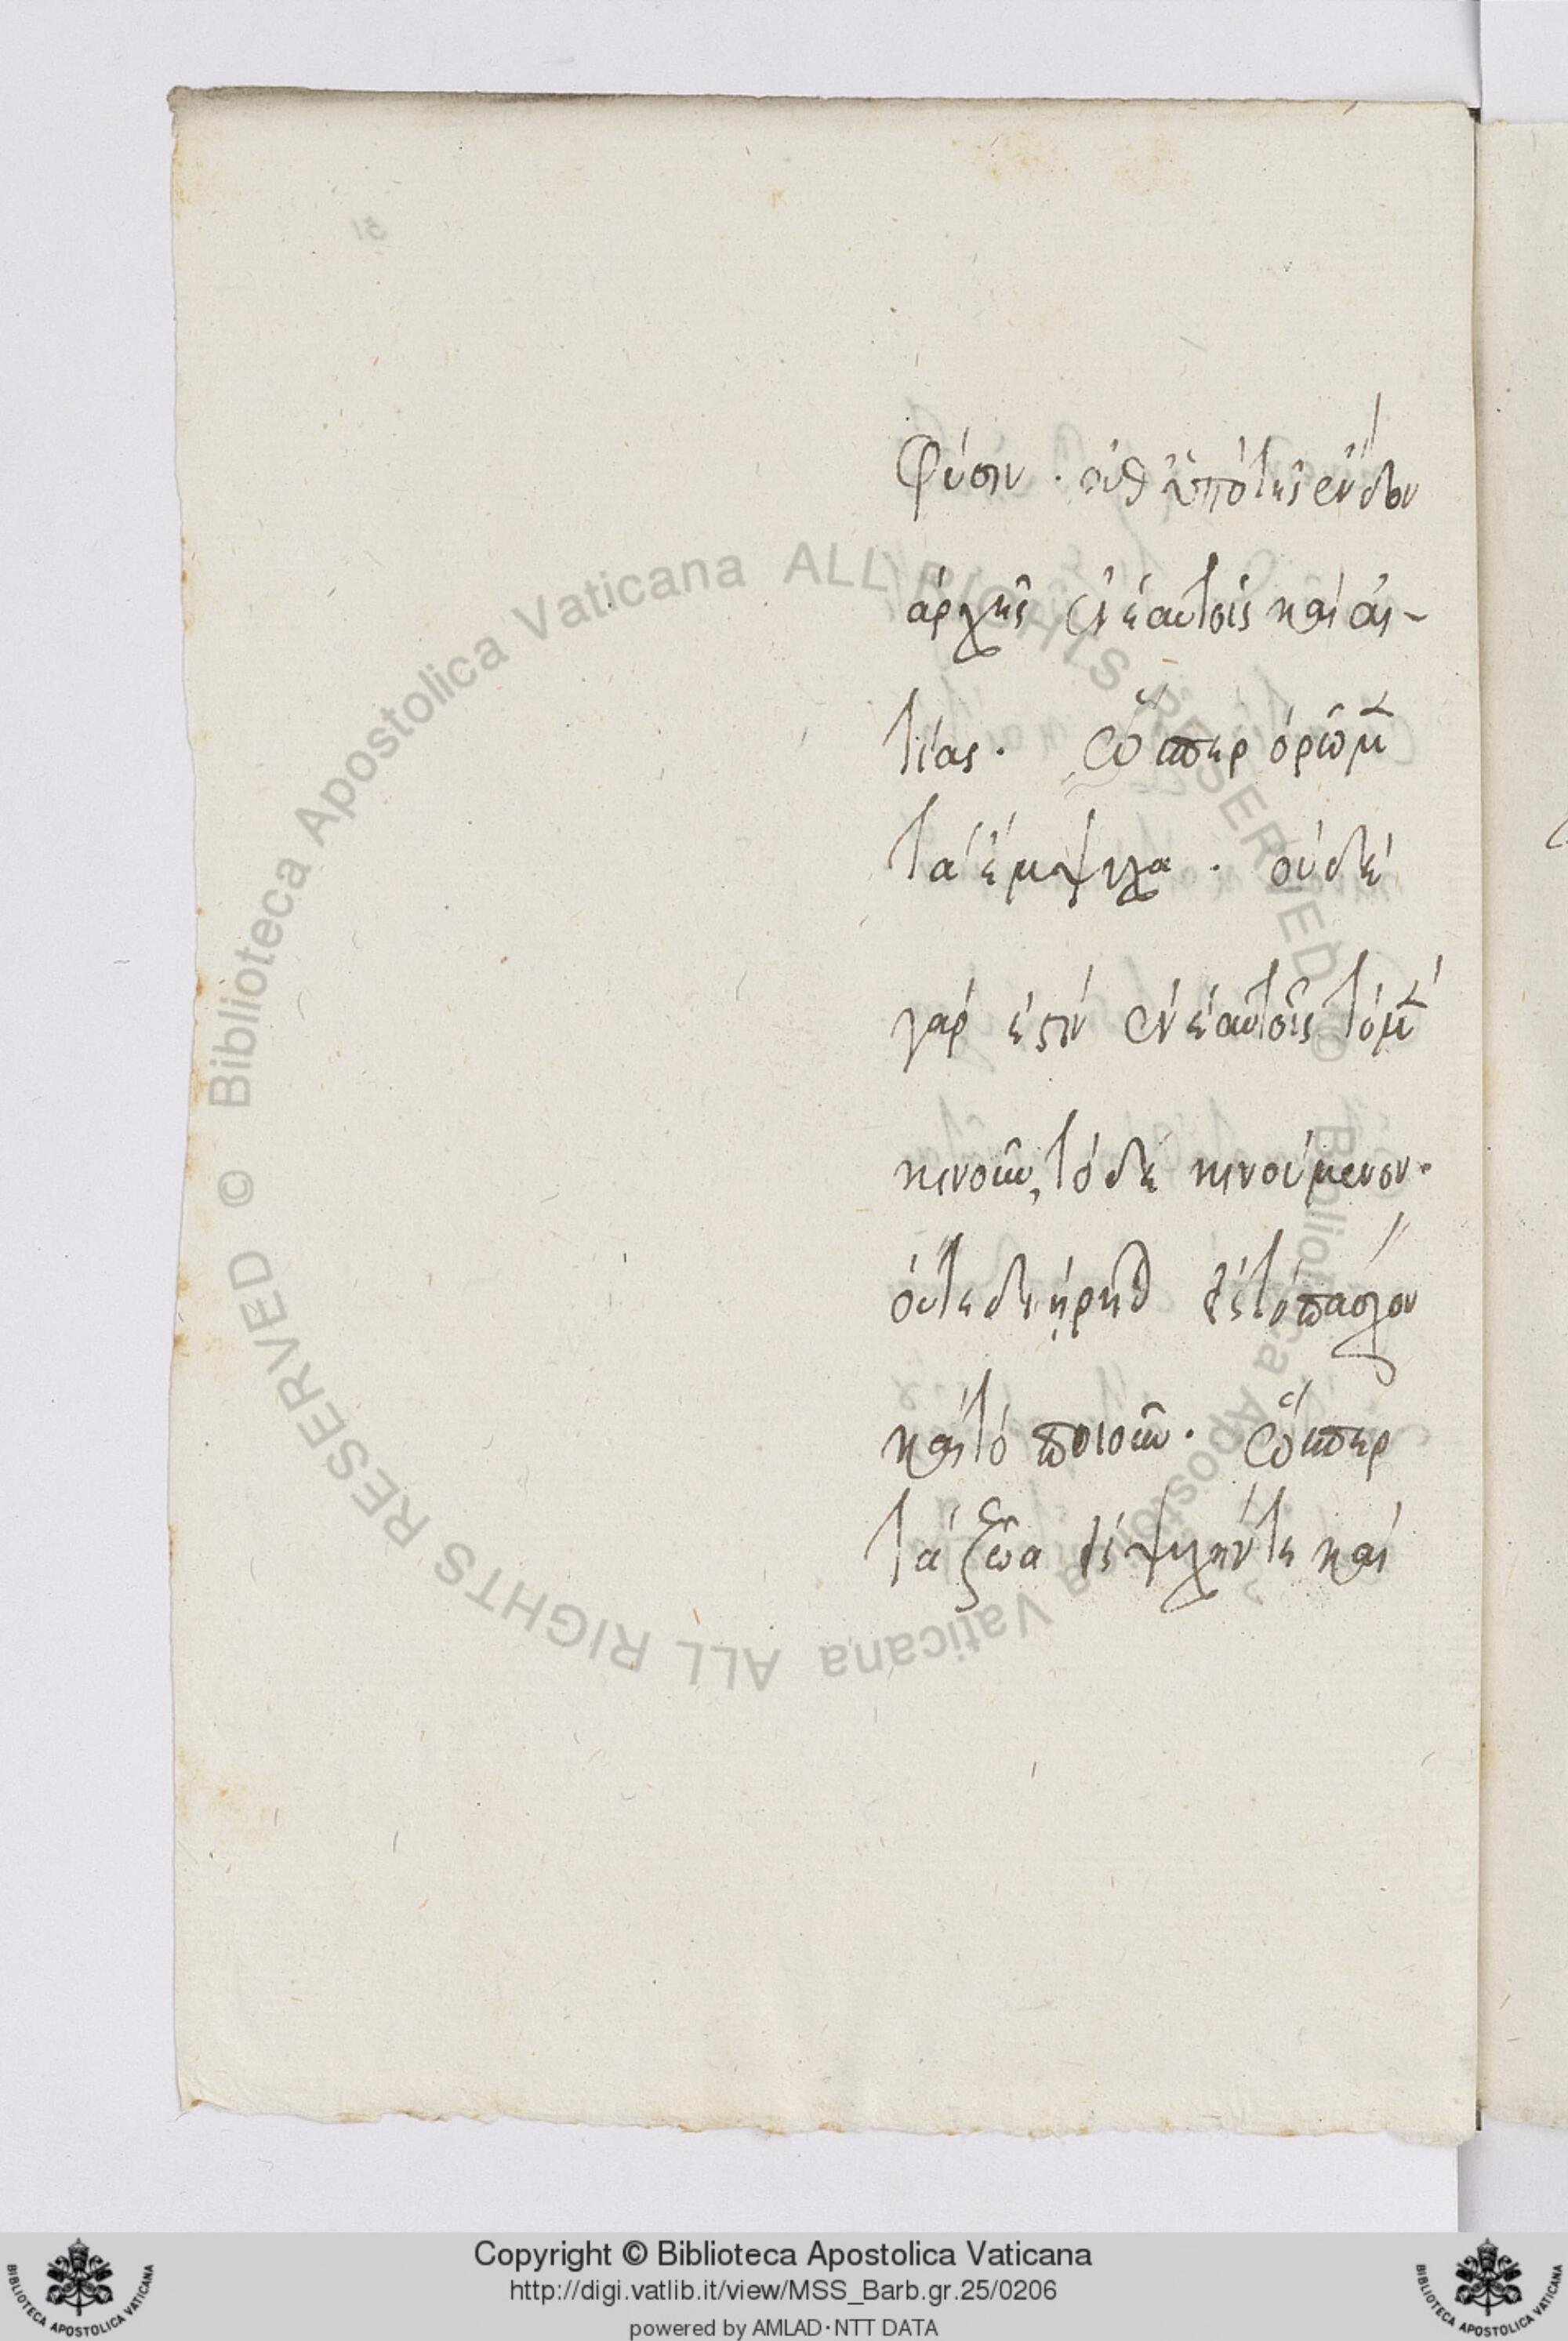 φύσιν · οὐθ ὑπὸ τῆς ἔνδον
ἀρχῆς ἐν ἑαυτοῖς καὶ αἰ-
τίας · ὥσπερ ὁρῶμ̃
τὰ ἔμψυχα · οὐδὲ
γάρ ἐστιν ἐν ἑαυτοῖς τὸ μ̃
κινοῦν, τὸ δὲ κινούμενον ·
οὔτε διῄρηθ εἰς τὸ πάσχον
καὶ τὸ ποιοῦν · ὥσπερ
τὰ ζῶα εἰς ψυχήν τε καὶ
© Biblioteca Apostolica Vaticana ALL RIGHTS RESERVED
© Biblioteca Apostolica Vaticana ALL RIGHTS RESERVED
Copyright © Biblioteca Apostolica Vaticana
http://digi.vatlib.it/view/MSS_Barb.gr.25/0206
powered by AMLAD·NTT DATA
BIBLIOTECA APOSTOLICA VATICANA
BIBLIOTECA APOSTOLICA VATICANA